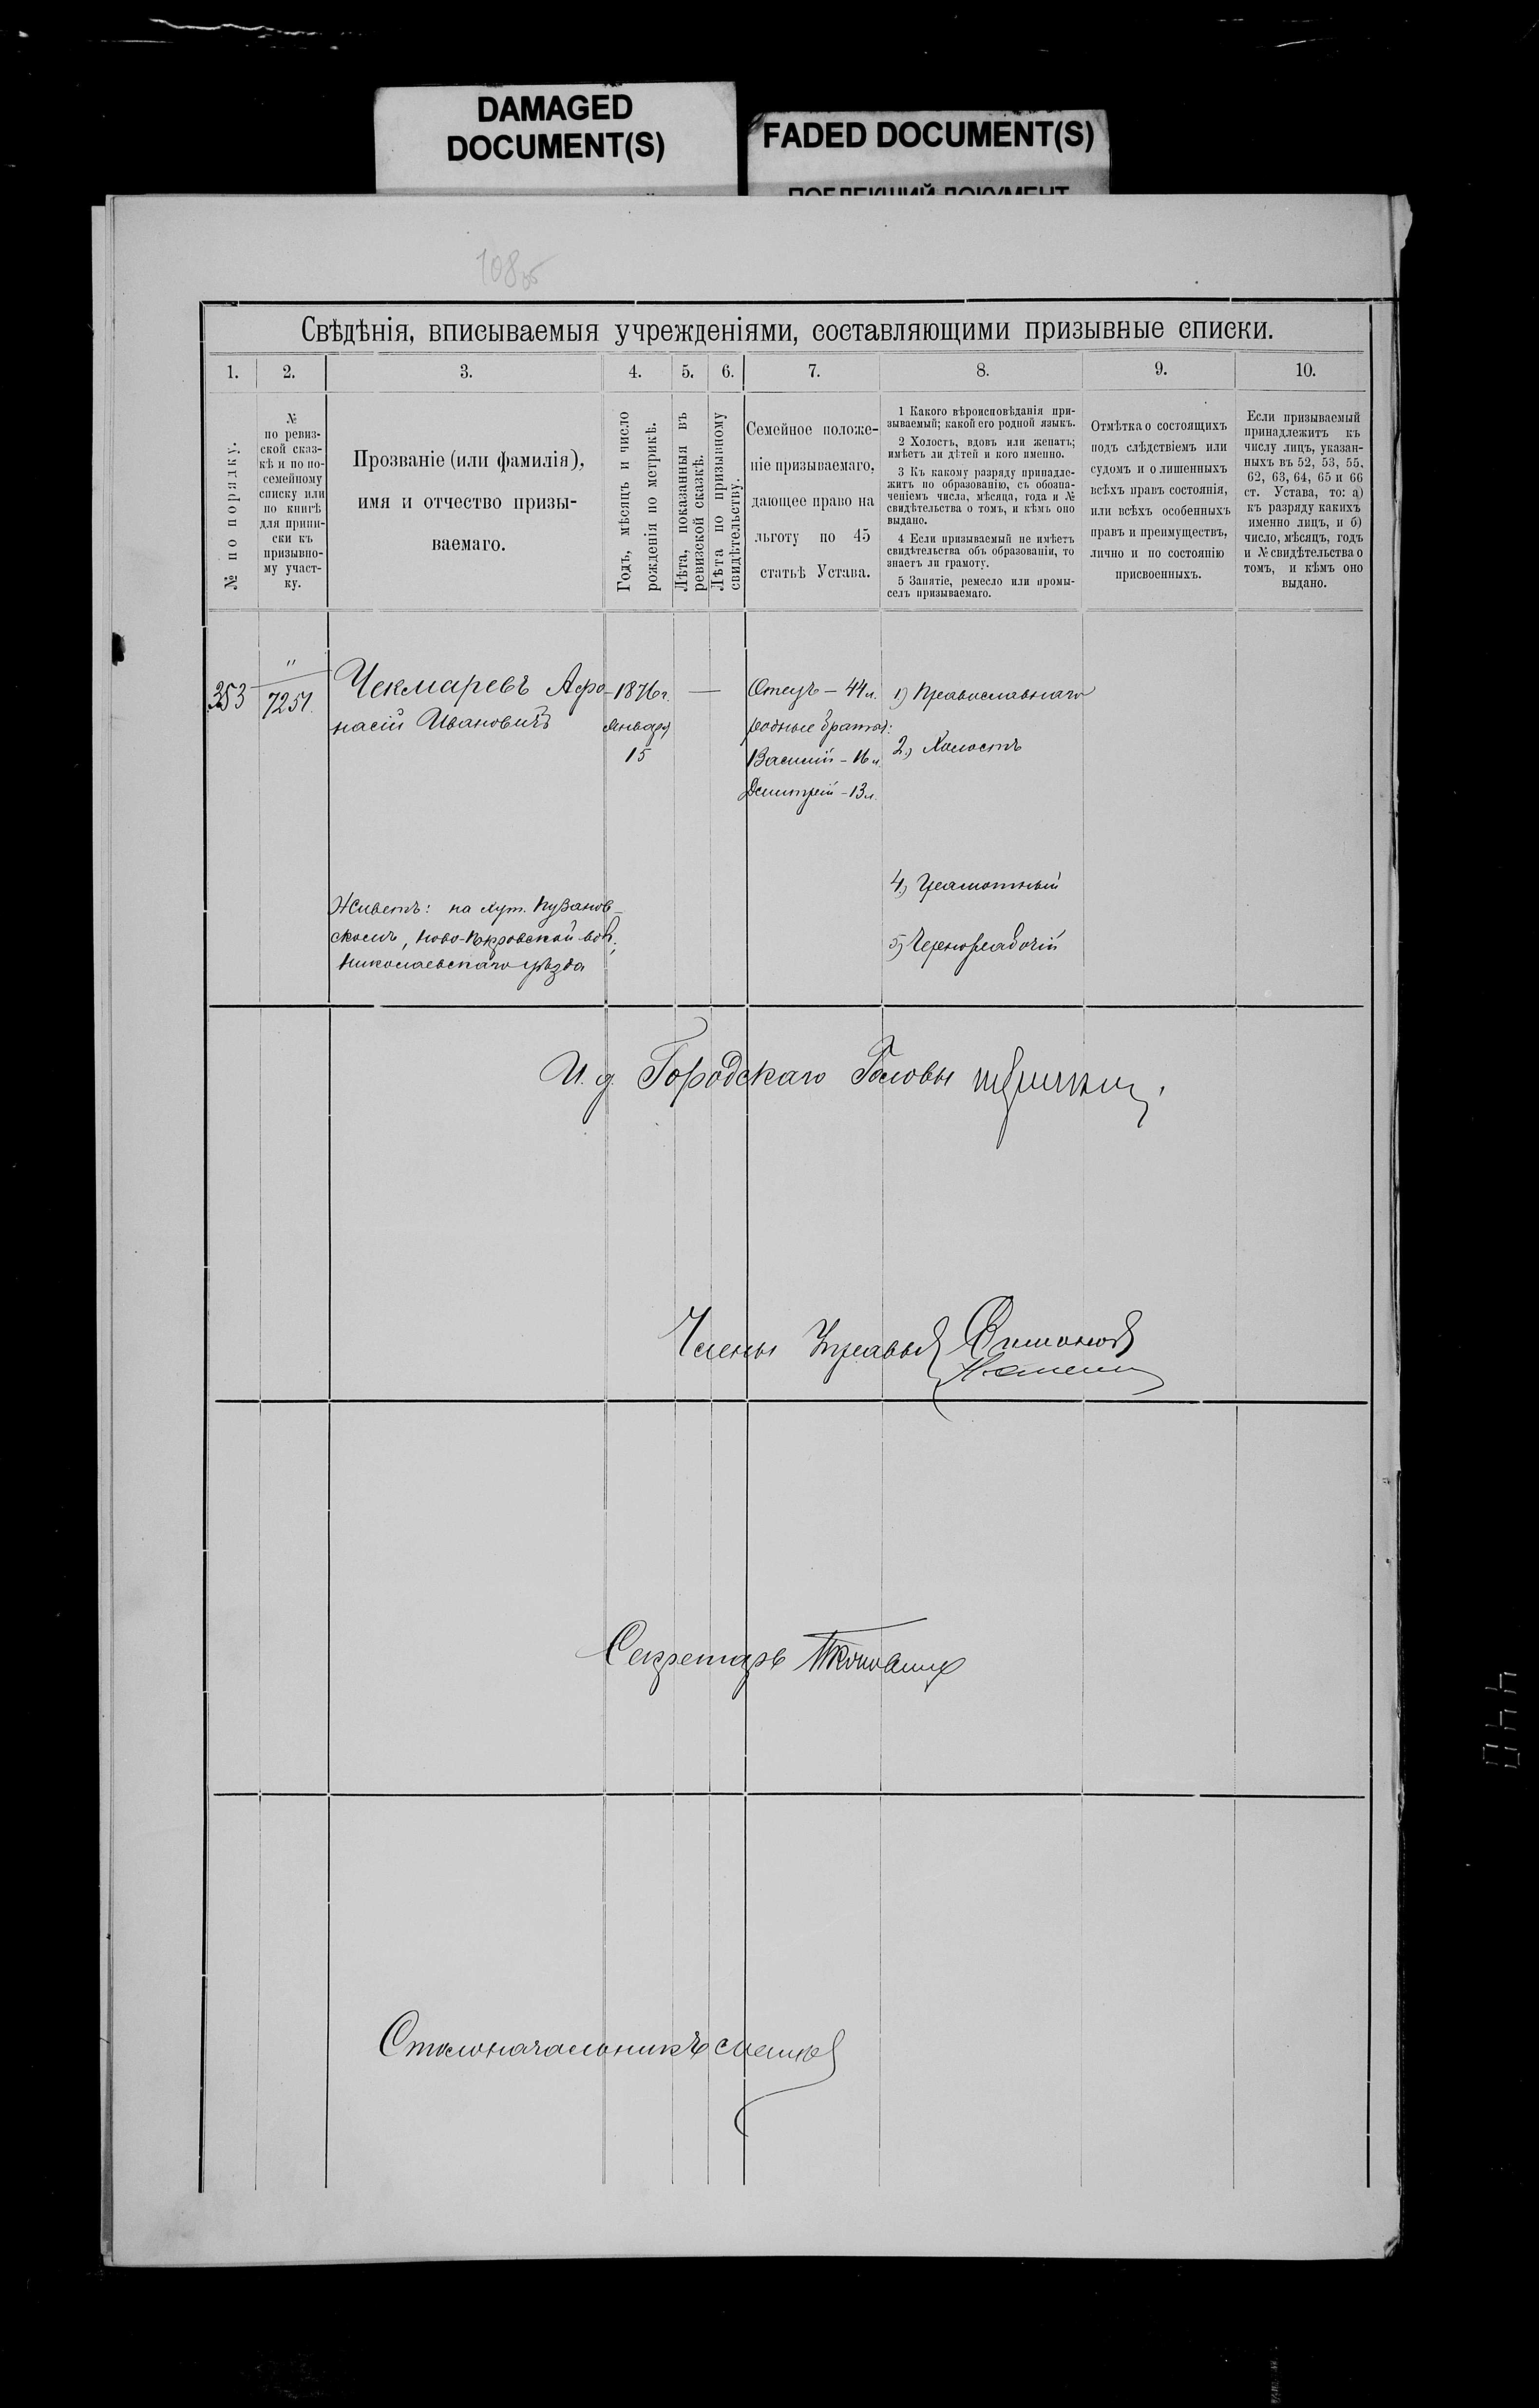 DAMAGED
DOCUMENT(S)
FADED DOCUMENT(S)
ПОБЛЕКШИЙ ДОКУМЕНТ
108об
Свѣдѣнія, вписываемыя учрежденіями, составляющими призывные списки.
1. 2. 3. 4. 5. 6. 7. 8. 9. 10.
№ по порядку.
№
по ревиз-
ской сказ-
кѣ и по по-
семейному
списку или
по книгѣ
для припи-
ски къ
призывно-
му участ-
ку.
Прозваніе (или фамилія),
имя и отчество призы-
ваемаго.
Годъ, мѣсяцъ и число
рожденія по метрикѣ.
Лѣта, показанныя въ
ревизской сказкѣ.
Лѣта по призывному
свидѣтельству.
Семейное положе-
ніе призываемаго,
дающее право на
льготу по 45
статьѣ Устава.
1 Какого вѣроисповѣданія при-
зываемый; какой его родной языкъ.
2 Холостъ, вдовъ или женатъ;
имѣетъ ли дѣтей и кого именно.
3 Къ какому разряду принадле-
житъ по образованію, съ обозна-
ченіемъ числа, мѣсяца, года и №
свидѣтельства о томъ, и кѣмъ оно
выдано.
4 Если призываемый не имѣетъ
свидѣтельства объ образованіи, то
знаетъ ли грамоту.
5 Занятіе, ремесло или промы-
селъ призываемаго.
Отмѣтка о состоящихъ
подъ слѣдствіемъ или
судомъ и о лишенныхъ
всѣхъ правъ состоянія,
или всѣхъ особенныхъ
правъ и преимуществъ,
лично и по состоянію
присвоенныхъ.
Если призываемый
принадлежитъ къ
числу лицъ, указан-
ныхъ въ 52, 53, 55,
62, 63, 64, 65 и 66
ст. Устава, то: а)
къ разряду какихъ
именно лицъ, и б)
число, мѣсяцъ, годъ
и № свидѣтельства о
томъ, и кѣмъ оно
выдано.
353
"
7251.
Чекмаревъ Афо-
насій Ивановичъ
1876 г.
Января
15
—
Отецъ — 44 л.
родные братья:
Василій – 16 л.
Дмитрій – 13 л.
1) Православнаго
2) Холостъ
4) Грамотный
5) Чернорабочій
Живетъ: на хут.
скомъ, Ново-Покровской вол.,
Николаевскаго уѣзда
И. д. Городскаго Головы
Члены Управы
Секретарь
Столоначальникъ
440